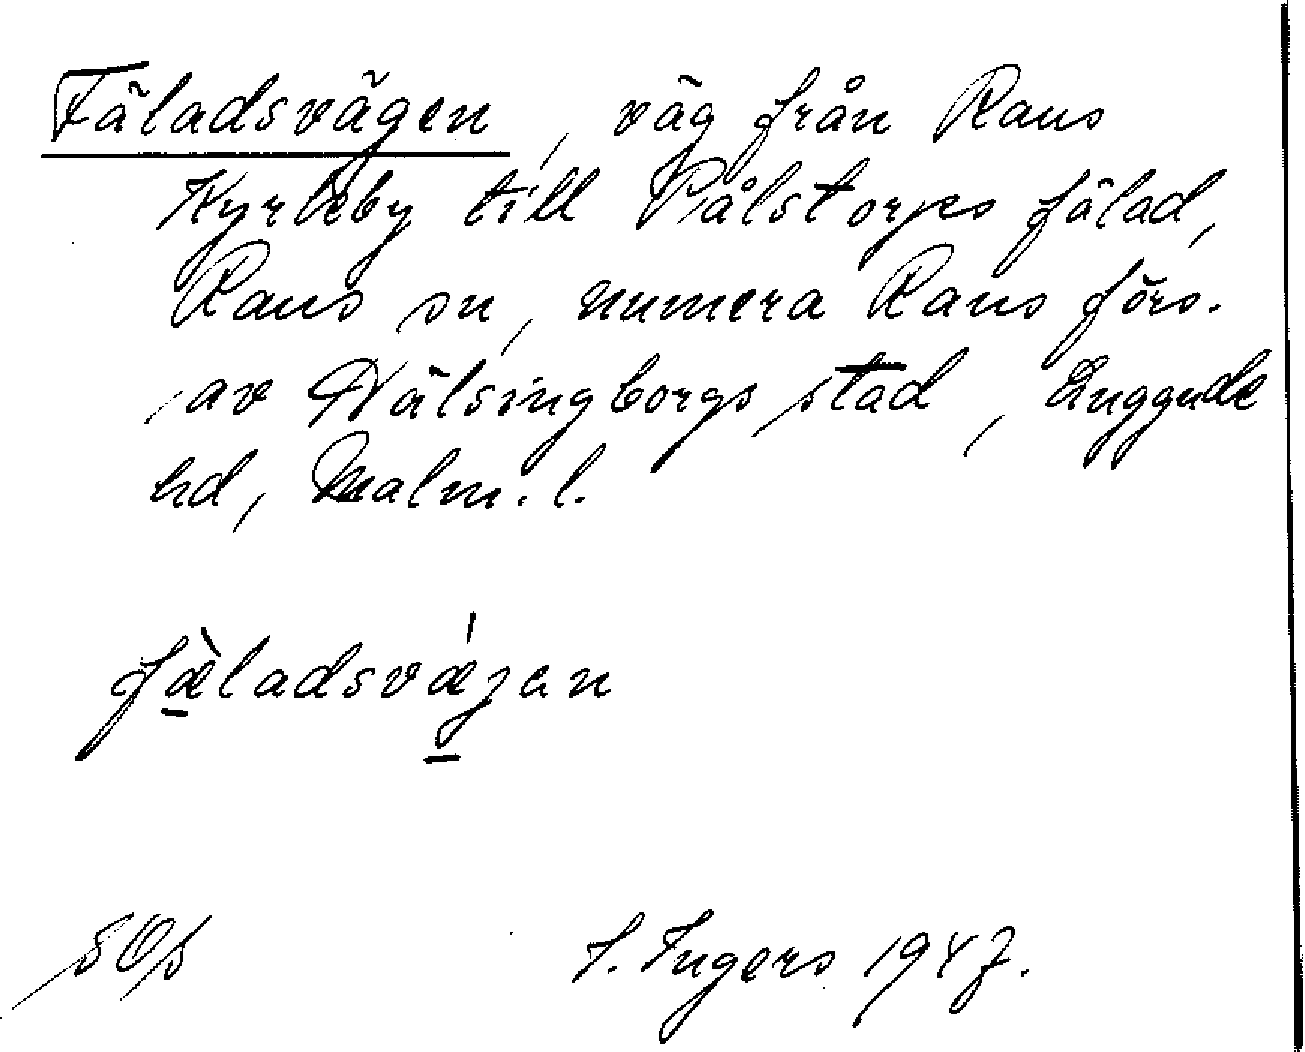 Fäladsvägen, väg från Raus
Kyrkeby till Pålstorps fälad,
Raus sn, numera Raus förs.
av Hälsingborgs stad, Luggude
hd, Malm. l.
fæ̀ladsvǽjen
I. Ingers 1947.